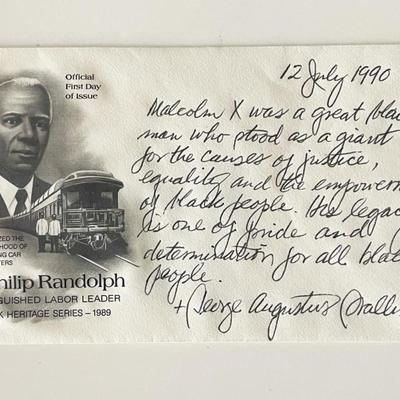 Official
First Day
of Issue
12 July 1990
Malcolm X was a great blac
man who stood as a giant
for the causes of justice,
equality and the empowerm
of black people. His legac
is one of pride and
determination for all blac
people.
+ George Augustus Stallin
ZED THE
HOOD OF
NG CAR
TERS
hilip Randolph
NGUISHED LABOR LEADER
K HERITAGE SERIES – 1989